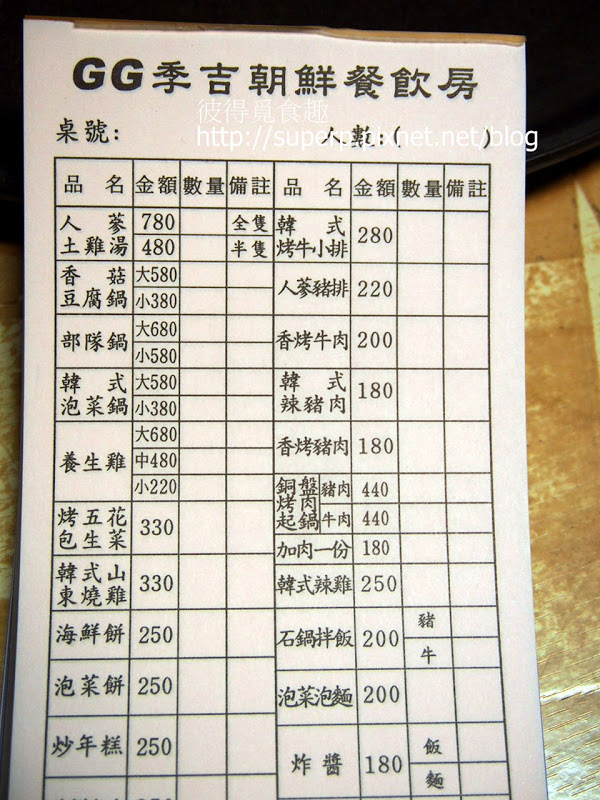 GG季吉朝鮮餐飲房
彼得覓食趣
桌號: 人數:( )
http://superpi.pixnet.net/blog
品名 金額 數量 備註 品名 金額 數量 備註
人蔘土雞湯 780 全隻
480 半隻
香菇豆腐鍋 大580
小380
部隊鍋 大680
小580
韓式泡菜鍋 大580
小380
養生雞 大680
中480
小220
烤五花包生菜 330
韓式山東燒雞 330
海鮮餅 250
泡菜餅 250
炒年糕 250
韓式烤牛小排 280
人蔘豬排 220
香烤牛肉 200
韓式辣豬肉 180
香烤豬肉 180
銅盤烤肉起鍋 豬肉 440
牛肉 440
加肉一份 180
韓式辣雞 250
石鍋拌飯 200 豬
牛
泡菜泡麵 200
炸醬 180 飯
麵